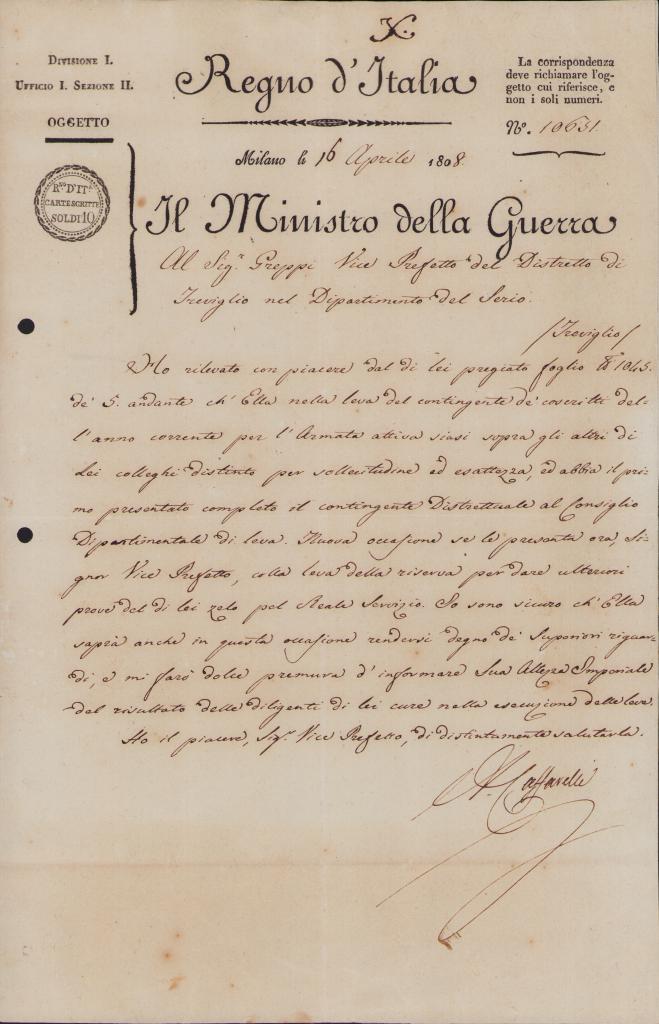 X.
Divisione I.
Ufficio I. Sezione II.
OGGETTO
Regno d'Italia
La corrispondenza
deve richiamare l'og-
getto cui riferisce, e
non i soli numeri.
Nº. 10631.
Milano li 16 Aprile 1808.
R.NO D'IT.A
CARTE SCRITTE
SOLDI 10
Il Ministro della Guerra
Al Sig.r Greppi Vice Prefetto del Distretto di
Treviglio nel Dipartimento del Serio.
/Treviglio/
Ho rilevato con piacere dal di lei pregiato foglio Nº 1045.
de' 5. andante ch' Ella nella leva del contingente de' coscritti del-
l'anno corrente per l'Armata attiva siasi sopra gli altri di
Lei colleghi distinto per sollecitudine ed esattezza, ed abbia il pri-
mo presentato completo il contingente Distrettuale al Consiglio
Dipartimentale di leva. Nuova occasione se le presenta ora, Si-
gnor Vice Prefetto, colla leva della riserva per dare ulteriori
prove del di lei zelo pel Reale Servizio. Io sono sicuro ch' Ella
saprà anche in questa occasione rendersi degno de' Superiori riguar-
di, e mi farò dolce premura d'informare Sua Altezza Imperiale
del risultato delle diligenti di lei cure nella esecuzione delle leve.
Ho il piacere, Sig.r Vice Prefetto, di distintamente salutarla.
A. Caffarelli